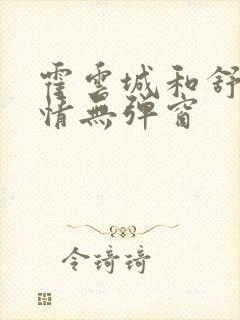 霍雲城和舒
情無彈窗
令琦琦